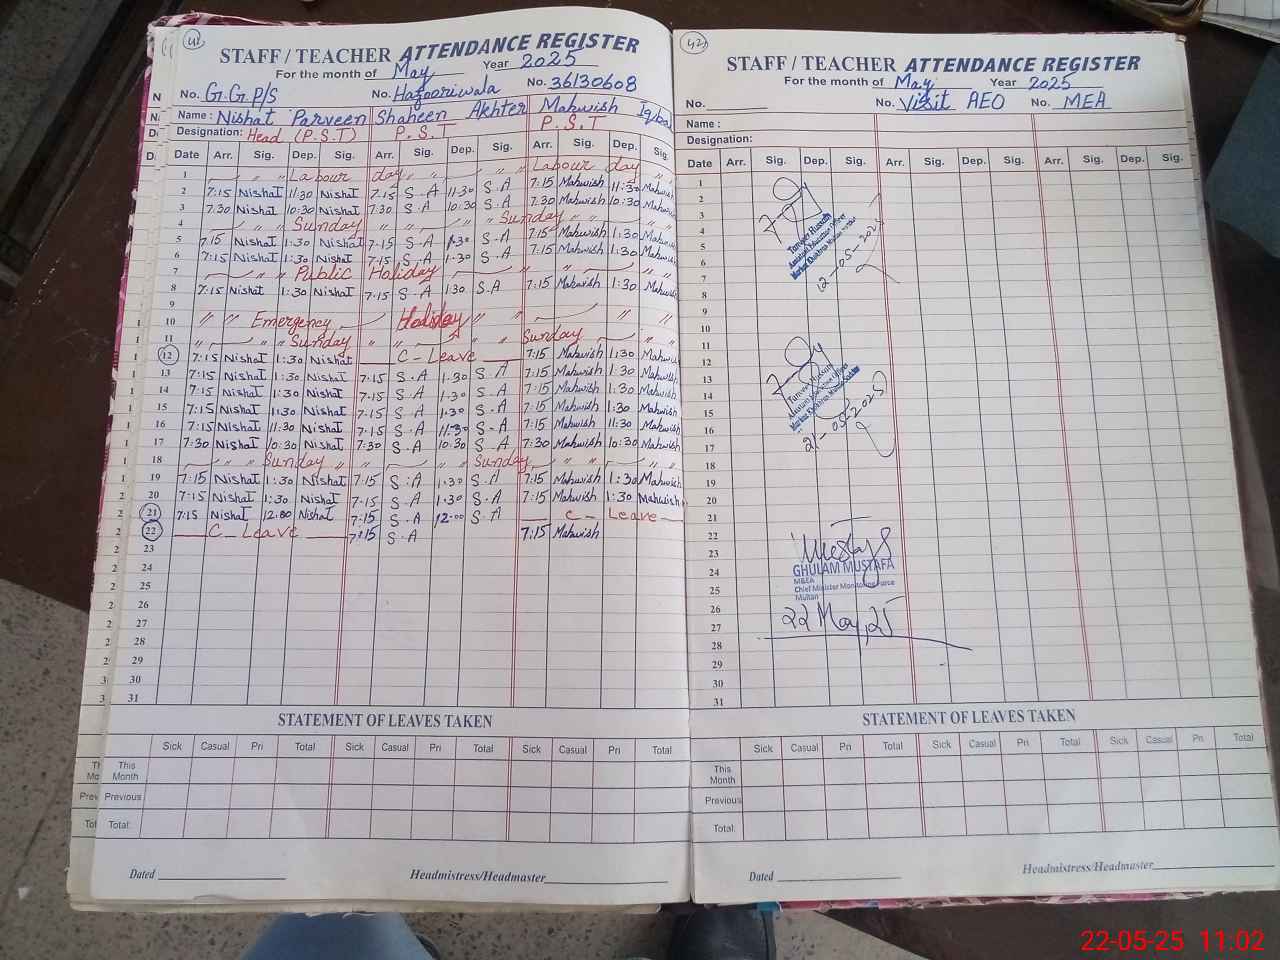 41
STAFF / TEACHER ATTENDANCE REGISTER
For the month of May Year 2025
No. G.G.P/S No. Hazooriwala No. 36130608
Name : Nishat Parveen Shaheen Akhter Mahwish Iqbal
Designation: Head (P.S.T) P.S.T P.S.T
Date Arr. Sig. Dep. Sig. Arr. Sig. Dep. Sig. Arr. Sig. Dep. Sig.
1 " " Labour day " " " Labour day " "
2 7:15 Nishat 11:30 Nishat 7.15 S.A 11.30 S.A 7:15 Mahwish 11:30 Mahwish
3 7.30 Nishat 10:30 Nishat 7:30 S.A 10:30 S.A 7.30 Mahwish 10:30 Mahwish
4 " " Sunday " " " " Sunday " " " "
5 7.15 Nishat 1:30 Nishat 7-15 S.A 1.30 S.A 7.15 Mahwish 1:30 Mahwish
6 7:15 Nishat 1:30 Nishat 7.15 S.A 1.30 S.A 7.15 Mahwish 1:30 Mahwish
7 " " Public Holiday " " " " "
8 7:15 Nishat 1:30 Nishat 7.15 S.A 1.30 S.A 7:15 Mahwish 1:30 Mahwish
9
10 " " Emergency Holiday " " " " "
11 " " " Sunday " " " Sunday " " "
12 7:15 Nishat 1:30 Nishat C-Leave 7:15 Mahwish 1:30 Mahwish
13 7:15 Nishat 1:30 Nishat 7.15 S.A 1.30 S.A 7:15 Mahwish 1:30 Mahwish
14 7:15 Nishat 1:30 Nishat 7.15 S.A 1.30 S.A 7:15 Mahwish 1:30 Mahwish
15 7:15 Nishat 1:30 Nishat 7.15 S.A 1.30 S.A 7:15 Mahwish 1:30 Mahwish
16 7:15 Nishat 11:30 Nishat 7.15 S.A 11:30 S.A 7:15 Mahwish 11:30 Mahwish
17 7:30 Nishat 10:30 Nishat 7:30 S.A 10:30 S.A 7:30 Mahwish 10:30 Mahwish
18 " " Sunday " " " " Sunday " " " "
19 7:15 Nishat 1:30 Nishat 7:15 S.A 1.30 S.A 7:15 Mahwish 1:30 Mahwish
20 7:15 Nishat 1:30 Nishat 7.15 S.A 1.30 S.A 7:15 Mahwish 1:30 Mahwish
21 7:15 Nishat 12.00 Nishat 7:15 S.A 12.00 S.A C - Leave
22 C-Leave 7:15 S.A 7:15 Mahwish
23
24
25
26
27
28
29
30
31
STATEMENT OF LEAVES TAKEN
Sick Casual Pri Total Sick Casual Pri Total Sick Casual Pri Total
This Month
Previous
Total:
Dated Headmistress/Headmaster
42
STAFF / TEACHER ATTENDANCE REGISTER
For the month of May Year 2025
No. No. Visit AEO No. MEA
Name :
Designation:
Date Arr. Sig. Dep. Sig. Arr. Sig. Dep. Sig. Arr. Sig. Dep. Sig.
1
2
3
4
5
6
7
8
9
10
11
12
13
14
15
16
17
18
19
20
21
22
23
24
25
26
27
28
29
30
31
Assistant Education Officer
12-05-2025
Assistant Education Officer
21-05-2025
GHULAM MUSTAFA
M&EA
Chief Minister Monitoring Force
Multan
22 May, 25
STATEMENT OF LEAVES TAKEN
Sick Casual Pri Total Sick Casual Pri Total Sick Casual Pri Total
This Month
Previous
Total:
Dated Headmistress/Headmaster
22-05-25 11:02